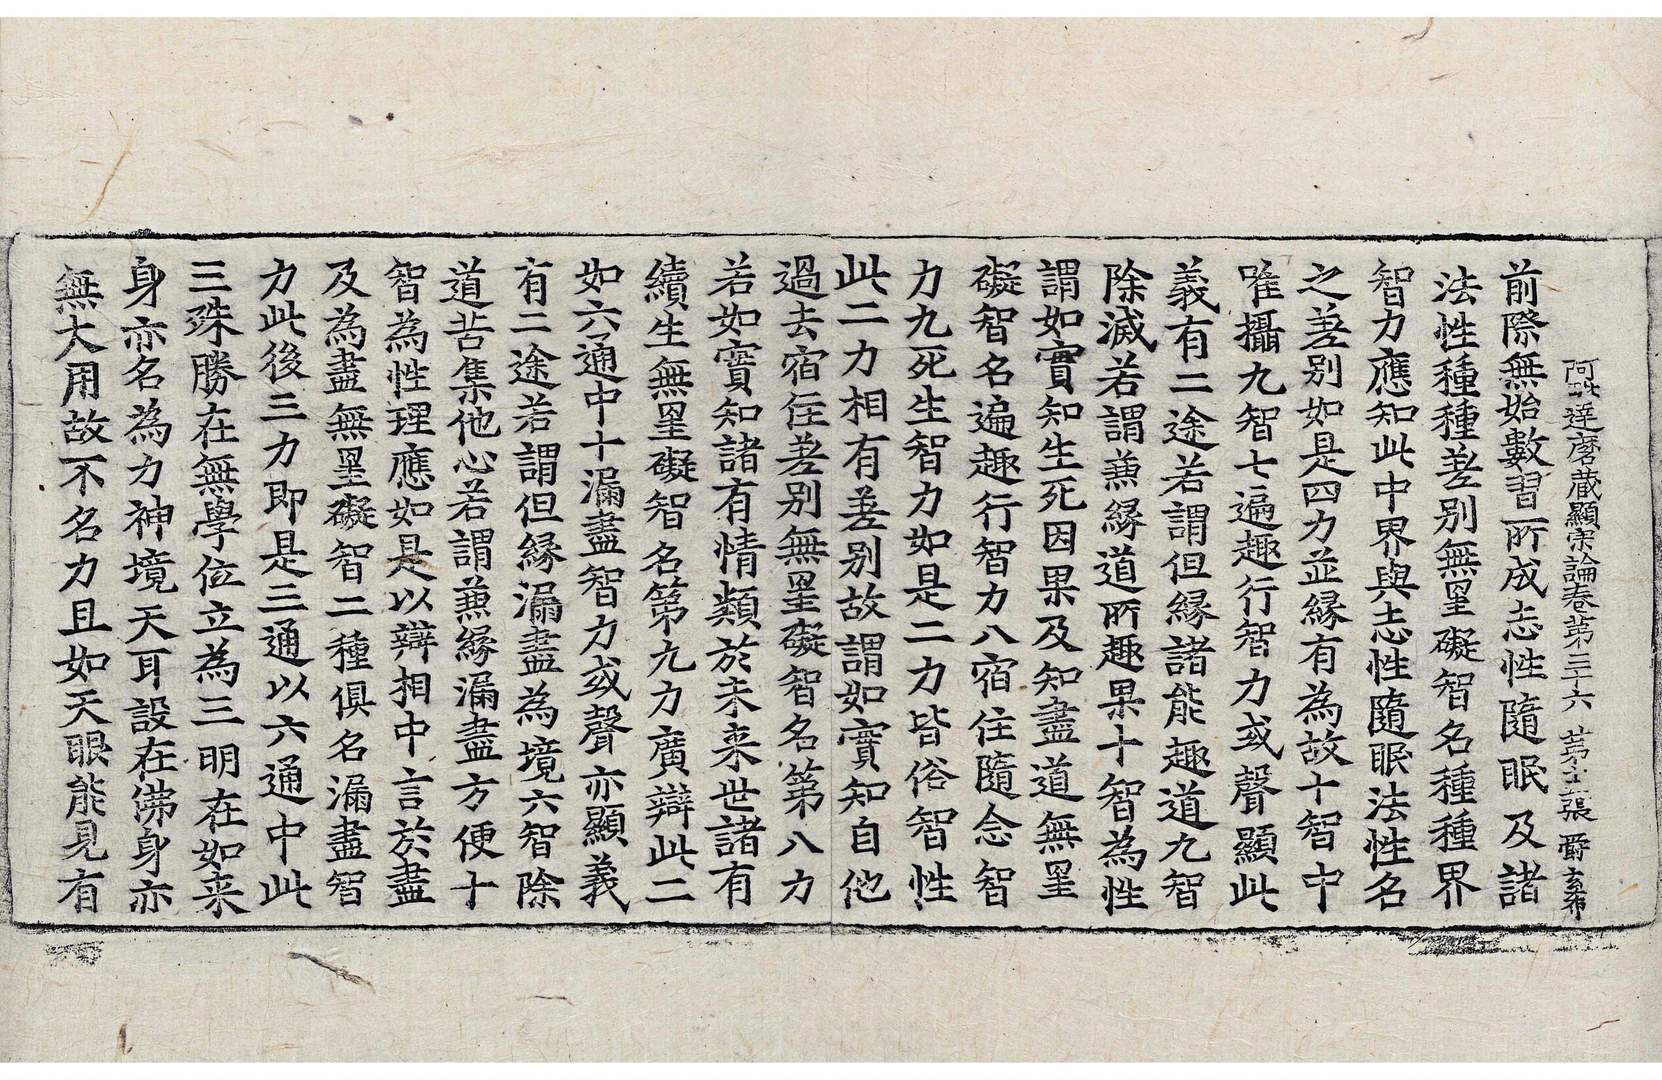 阿毗達磨藏顯宗論卷第三十六 第五張 爵 
前際無始數習所成志性隨眠及諸
法性種種差別無罣礙智名種種界
智力應知此中界與志性隨眠法性名
之差別如是四力並緣有為故十智中
唯攝九智七遍趣行智力或聲顯此
義有二途若謂但緣諸能趣道九智
除滅若謂兼緣道所趣果十智為性
謂如實知生死因果及知盡道無罣
礙智名遍趣行智力八宿住隨念智
力九死生智力如是二力皆俗智性
此二力相有差別故謂如實知自他
過去宿住差別無罣礙智名第八力
若如實知諸有情類於未來世諸有
續生無罣礙智名第九力廣辯此二
如六通中十漏盡智力或聲亦顯義
有二途若謂但緣漏盡為境六智除
道苦集他心若謂兼緣漏盡方便十
智為性理應如是以辯相中言於盡
及為盡無罣礙智二種俱名漏盡智
力此後三力即是三通以六通中此
三殊勝在無學位立為三明在如来
身亦名為力神境天耳設在佛身亦
無大用故不名力且如天眼能見有